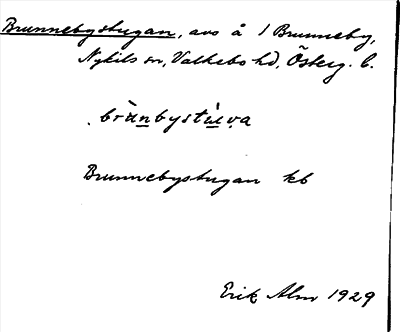 Brunnebystugan, avs å 1 Brunneby,
Nykils sn, Valkebo hd, Österg. l.
brùnbystùva
Brunnebystugan kb
Erik Alm 1929